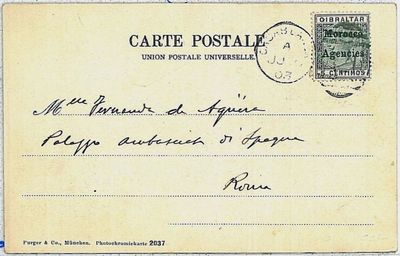 CARTE POSTALE
UNION POSTALE UNIVERSELLE
GIBRALTAR
Morocco
Agencies
5 CENTIMOS
A
JU
03
Mlle Fernanda de Agüera
Palazzo di Spagna
Roma
Purger & Co., München. Photochromiekarte 2037